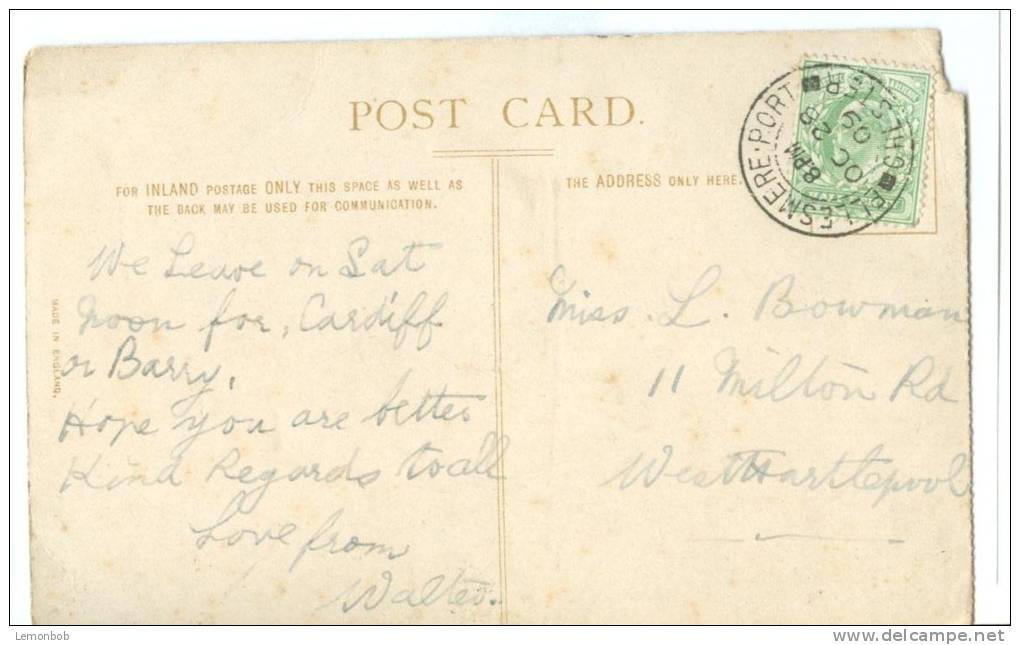 POST CARD.
FOR INLAND POSTAGE ONLY THIS SPACE AS WELL AS
THE BACK MAY BE USED FOR COMMUNICATION.
THE ADDRESS ONLY HERE.
ELLESMERE·PORT
CHESTER
8 PM
OC 28
09
MADE IN ENGLAND.
We Leave on Sat
Noon for, Cardiff
or Barry.
Hope you are better
Kind Regards to all
Love from
Walter.
Miss. L. Bowman
11 Milton Rd
West Hartlepool
Lemonbob
http://www.delcampe.net